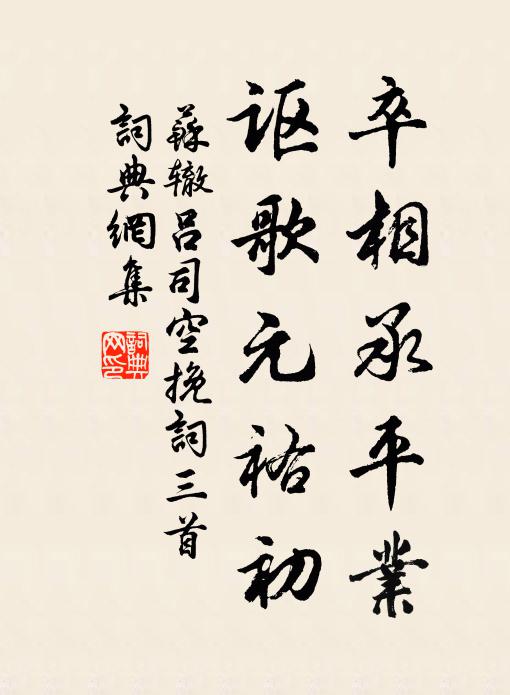 卒相承平業
讴歌元祐初
蘇辙吕司空挽詞三首
詞典網集
詞典
网印